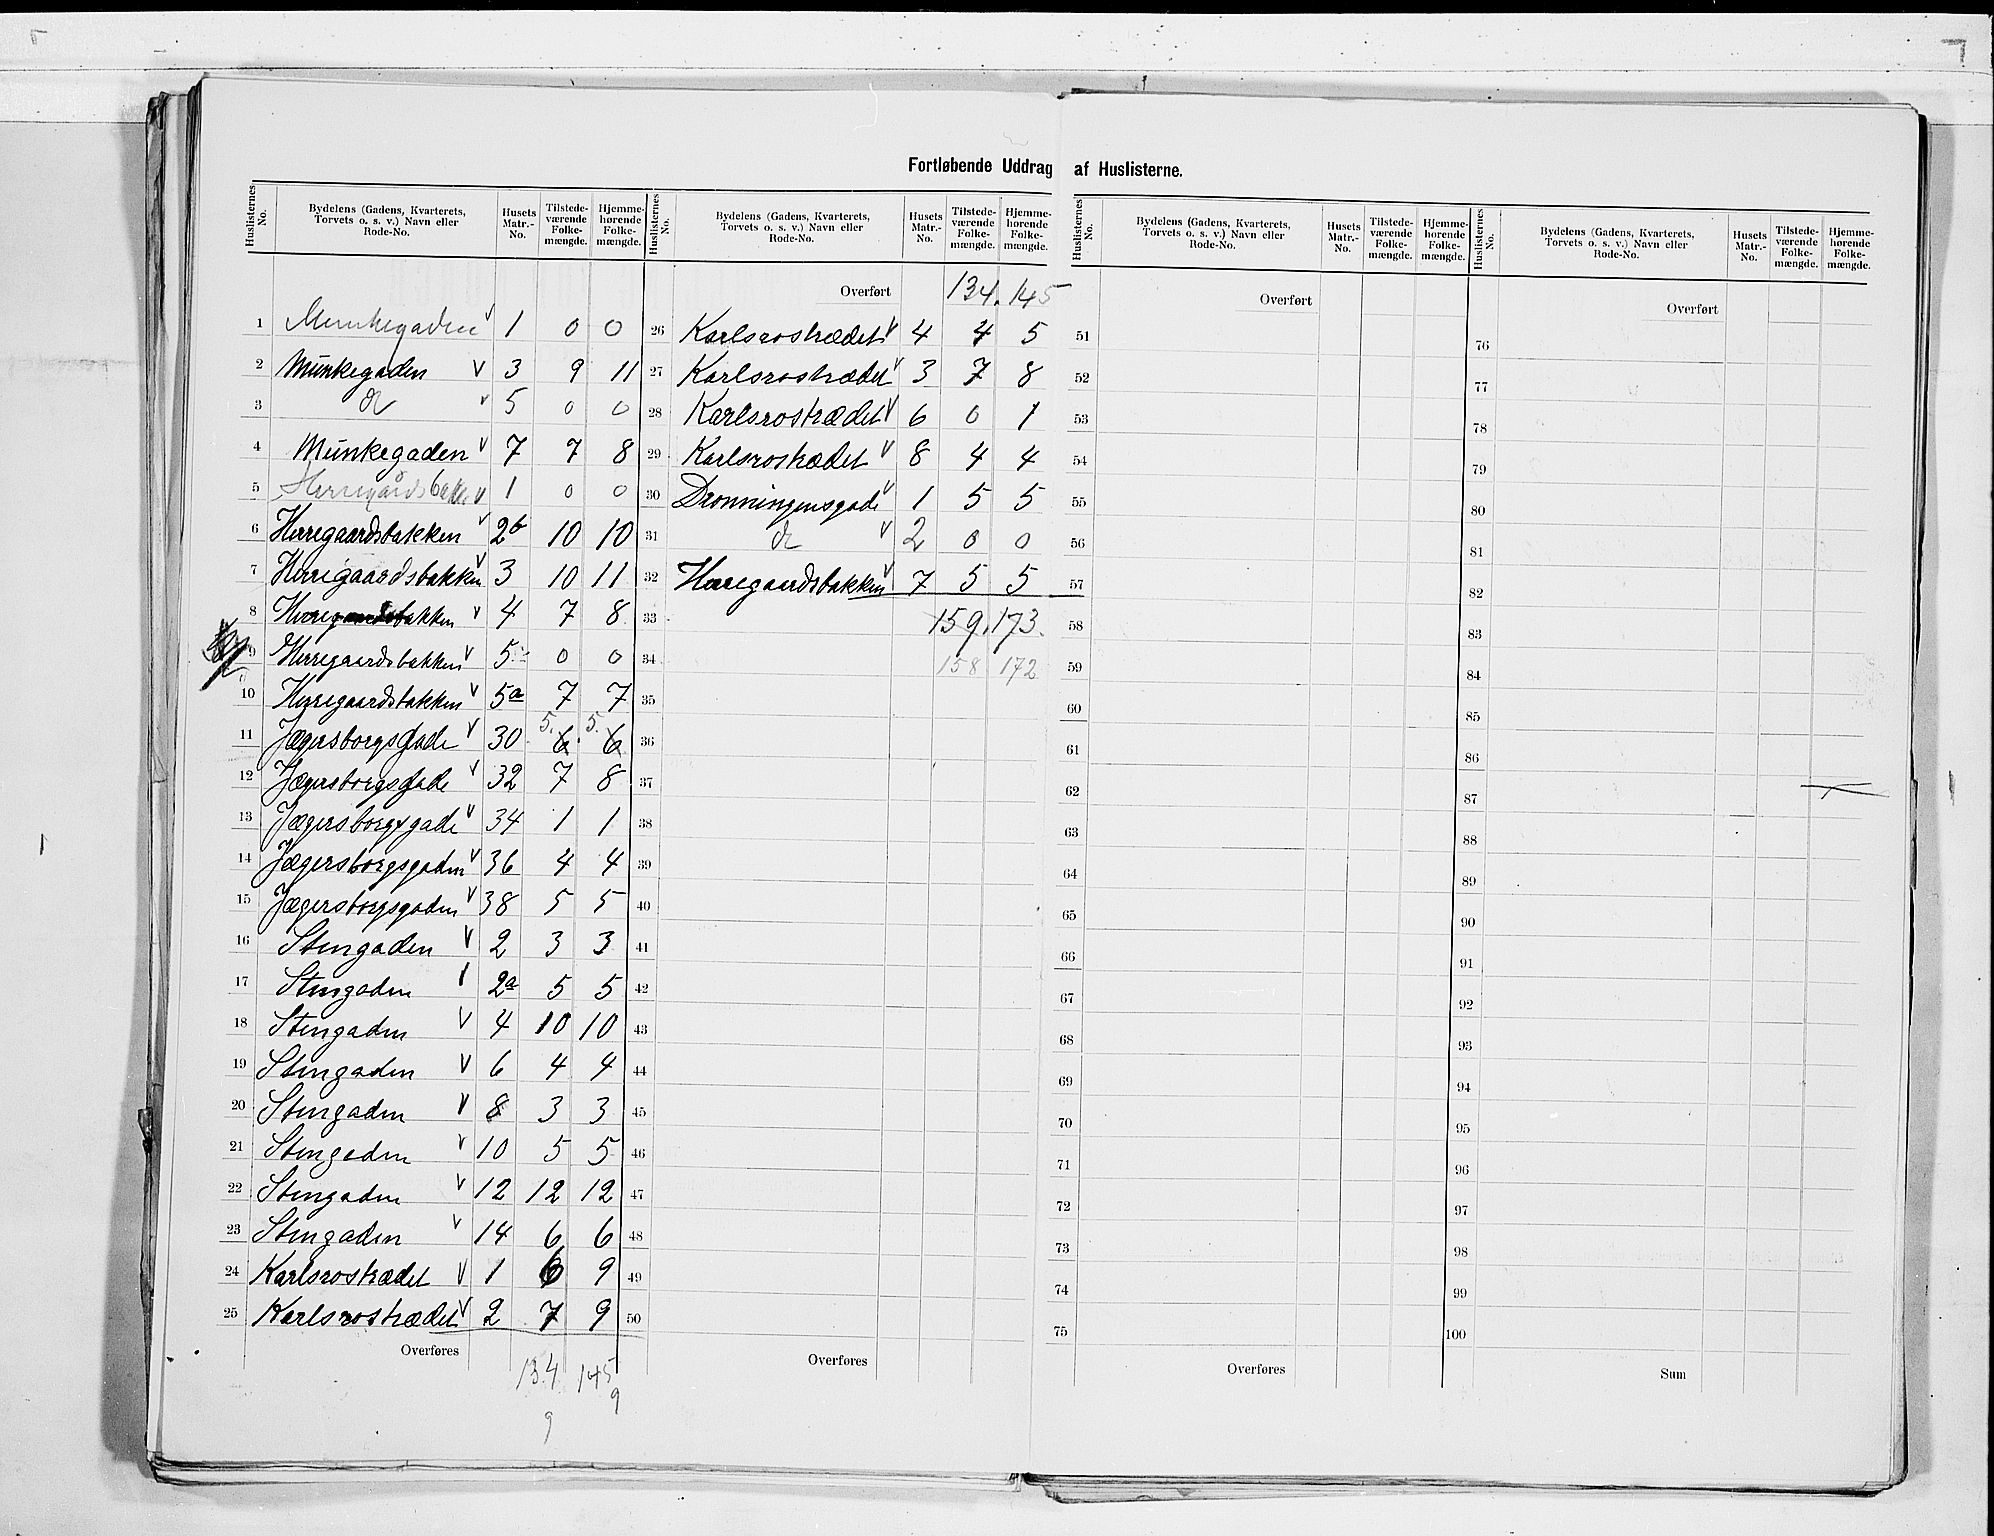 Fortløbende Uddrag af Huslisterne.
Huslisternes No. Bydelens (Gadens, Kvarterets, Torvets o. s. v.) Navn eller Rode-No. Husets Matr.-No. Tilstedeværende Folkemængde. Hjemmehørende Folkemængde.
1 Munkegaden v 1 0 0
2 Munkegaden v 3 9 11
3 do v 5 0 0
4 Munkegaden v 7 7 8
5 Herregårdsbakken v 1 0 0
6 Herregaardsbakken v 2b 10 10
7 Herregaardsbakken v 3 10 11
8 Herregaardsbakken v 4 7 8
9 Herregaardsbakken v 5 0 0
10 Herregaardsbakken v 5a 7 7
11 Jægersborgsgade v 30 5. 6 5. 6
12 Jægersborgsgade v 32 7 8
13 Jægersborgsgade v 34 1 1
14 Jægersborgsgaden v 36 4 4
15 Jægersborgsgaden v 38 5 5
16 Stengaden v 2 3 3
17 Stengaden 2a 5 5
18 Stengaden v 4 10 10
19 Stengaden v 6 4 4
20 Stengaden v 8 3 3
21 Stengaden v 10 5 5
22 Stengaden v 12 12 12
23 Stengaden v 14 6 6
24 Karlsrostrædet v 1 6 9
25 Karlsrostrædet v 2 7 9
Overføres 134 145
9 9
Huslisternes No. Bydelens (Gadens, Kvarterets, Torvets o. s. v.) Navn eller Rode-No. Husets Matr.-No. Tilstedeværende Folkemængde. Hjemmehørende Folkemængde.
Overført 134. 145
26 Karlsrostrædet v 4 4 5
27 Karlsrostrædet v 3 7 8
28 Karlsrostrædet v 6 0 1
29 Karlsrostrædet v 8 4 4
30 Dronningensgade v 1 5 5
31 do v 2 0 0
32 Herregaardsbakken v 7 5 5
33 159. 173.
34 158 172
35
36
37
38
39
40
41
42
43
44
45
46
47
48
49
50
Overføres
Huslisternes No. Bydelens (Gadens, Kvarterets, Torvets o. s. v.) Navn eller Rode-No. Husets Matr.-No. Tilstedeværende Folkemængde. Hjemmehørende Folkemængde.
Overført
51
52
53
54
55
56
57
58
59
60
61
62
63
64
65
66
67
68
69
70
71
72
73
74
75
Overføres
Huslisternes No. Bydelens (Gadens, Kvarterets, Torvets o. s. v.) Navn eller Rode-No. Husets Matr.-No. Tilstedeværende Folkemængde. Hjemmehørende Folkemængde.
Overført
76
77
78
79
80
81
82
83
84
85
86
87
88
89
90
91
92
93
94
95
96
97
98
99
100
Sum